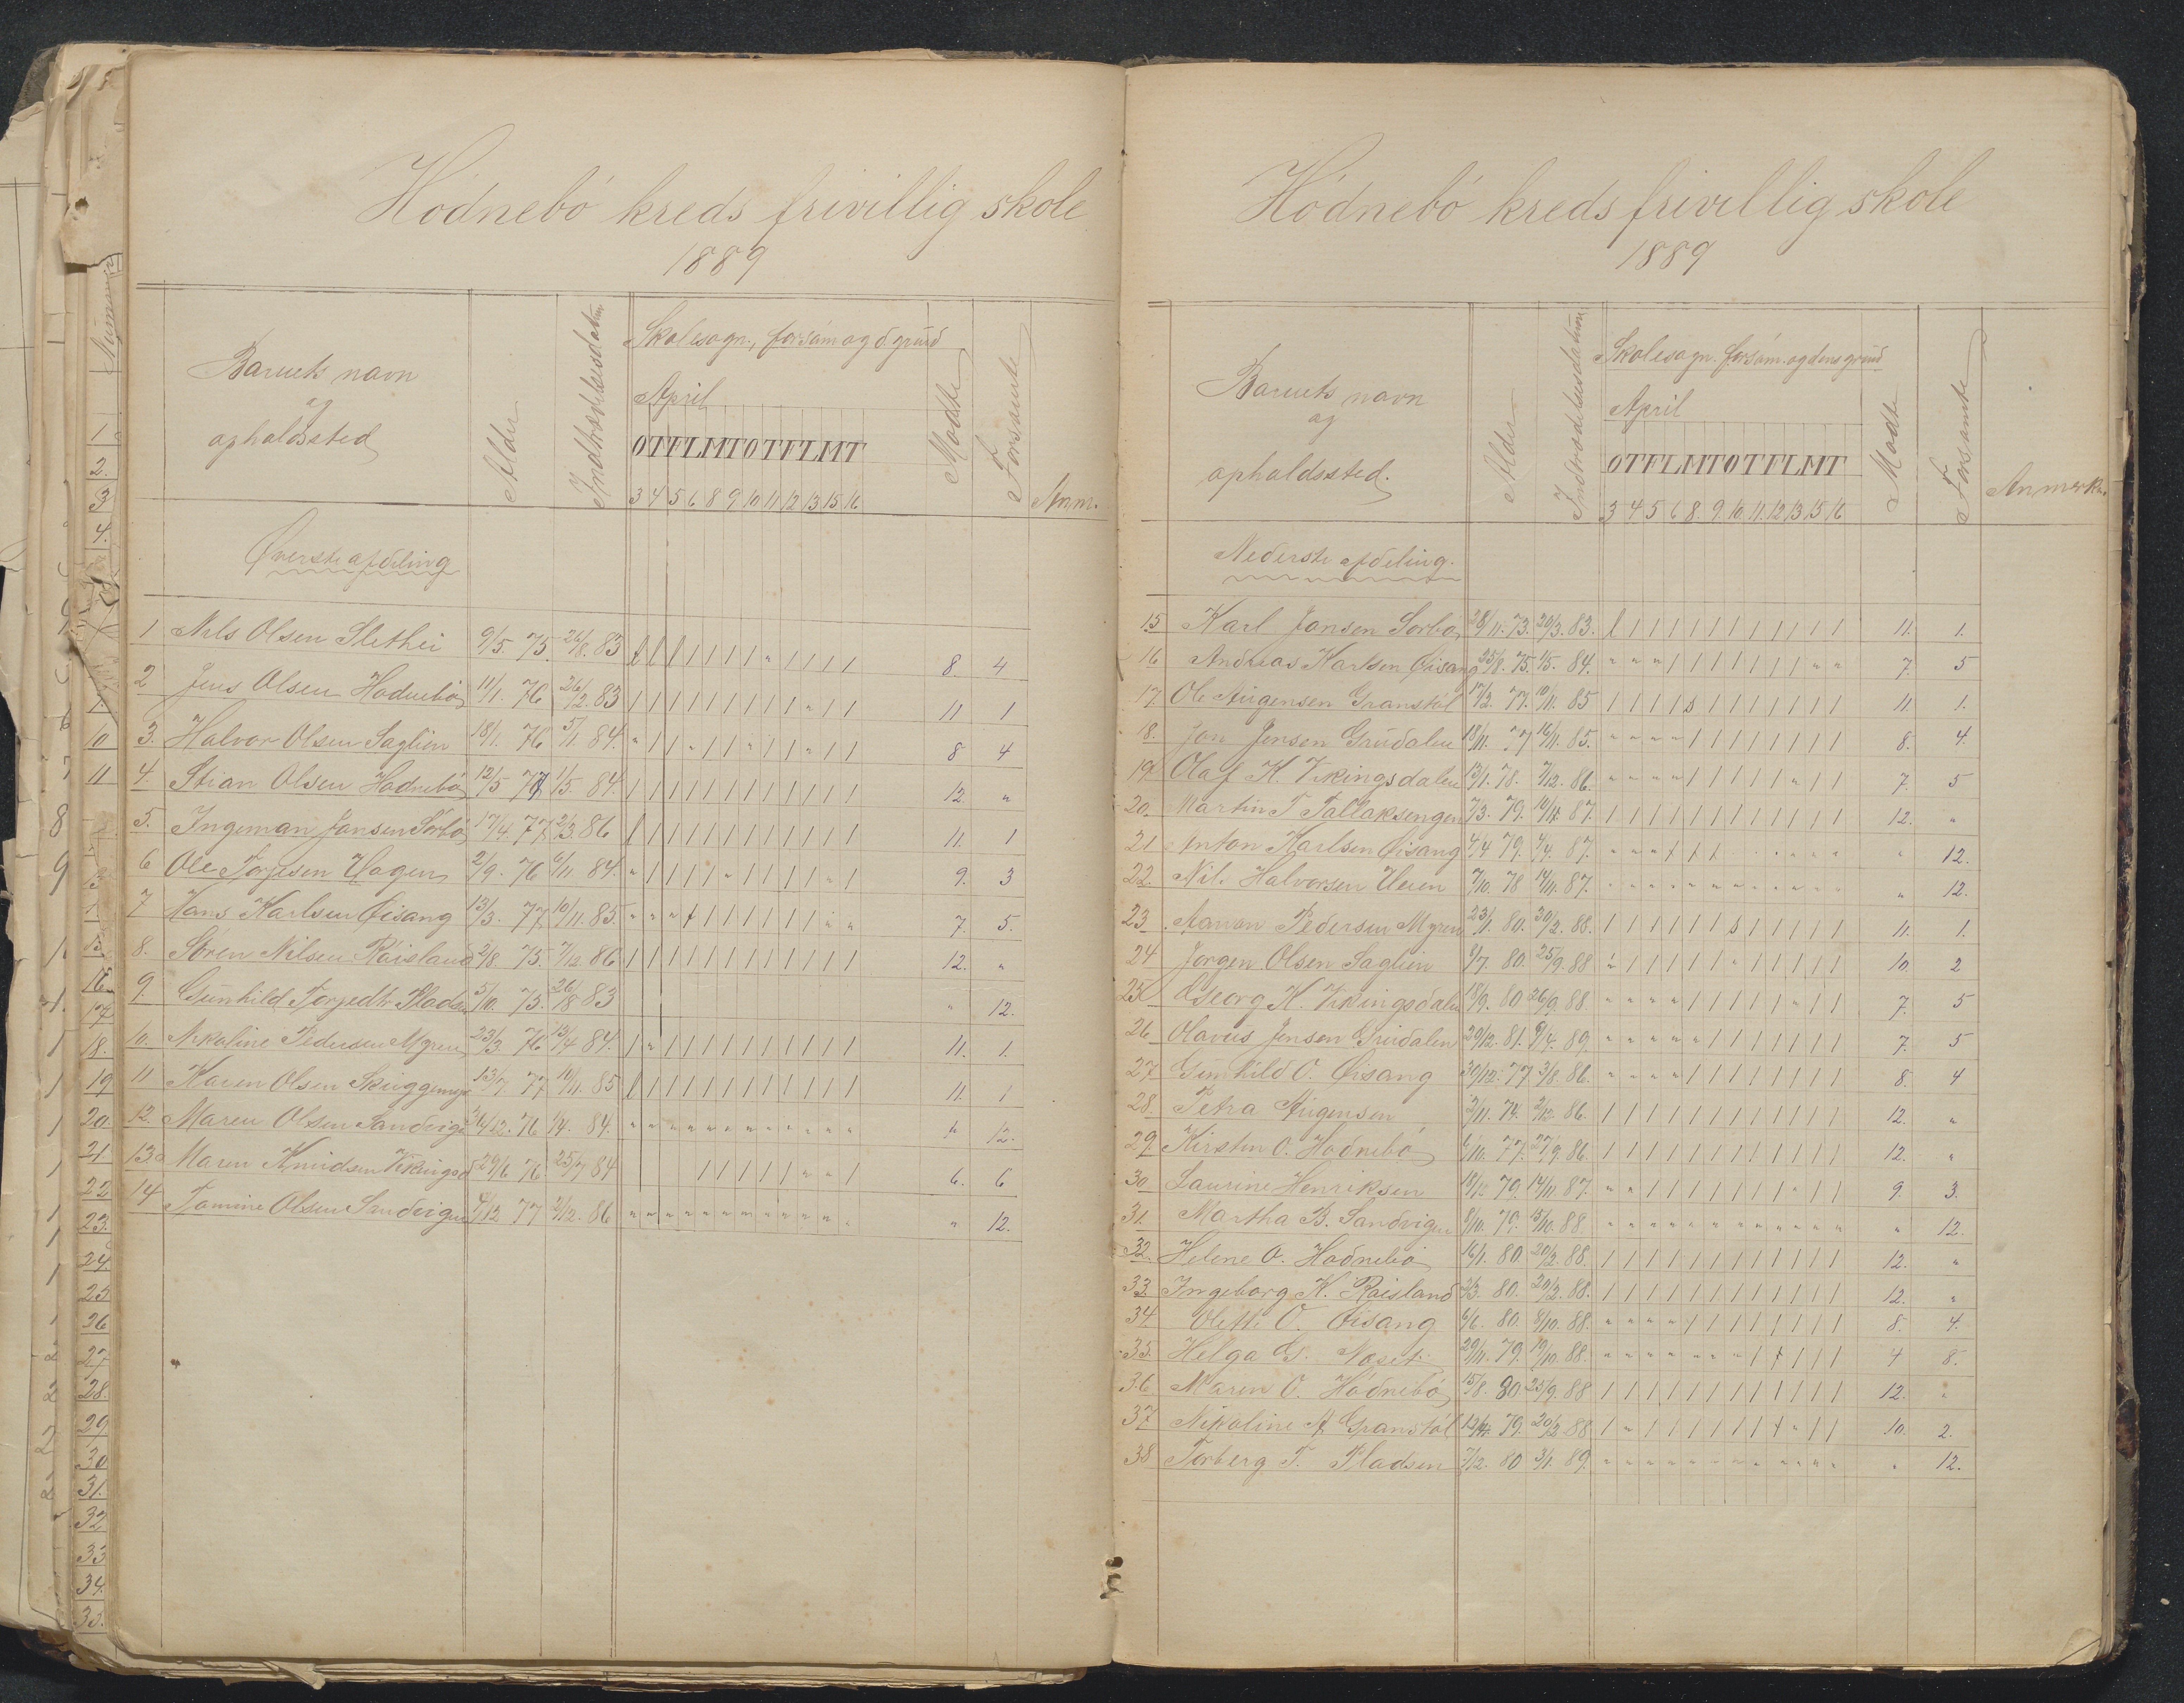 Hódnebó kreds frivillig skole
1889
Barnets navn
og
opholdssted
Alder
Indtrædelsesdatum
Skolesøgn., forsøm og d grund
April
O T F L M T O T F L M T
3 4 5 6 8 9 10 11 12 13 15 16
Mødte
Forsømte
Anm.
Øverste afdeling
1 Nils Olsen Slethei 9/5. 75. 26/8. 83 8. 4
2 Jens Olsen Hodnebø 11/1. 76 26/2. 83 11 1
3. Halvor Olsen Saglien 18/1. 76 5/11 84. 8 4
4. Stian Olsen Hodnebø 12/5 77 1/5 84. 12. "
5. Ingeman Jansen Sørbø 17/4. 77. 2/3. 86 11. 1
6 Ole Torjesen Hagen 2/9. 76 6/11 84. 9. 3
7 Hans Karlsen Øisang 13/3. 77 10/11. 85 7. 5.
8. Søren Nilsen Røisland 2/8. 75. 7/12 86 12. "
9. Gunhild Torjedtr Pladsen 5/10. 75. 26/8 83 " 12.
10. Nikoline Pedersen Myren 23/3. 76 15/4 84. 11. 1.
11 Karen Olsen Skuggemyr 13/7. 77 10/11. 85 11. 1
12. Maren Olsen Sandvigen 24/12. 76 1/4. 84. " 12.
13. Maren Knudsen Vikingsd 29/6 76. 25/7 84 6. 6
14 Tomine Olsen Sandvigen 4/12 77 2/12. 86 " 12.
Hódnebó kreds frivillig skole
1889
Barnets navn
og
opholdssted.
Alder
Indtrædelsesdatum
Skolesøgn. forsøm. og dens grund
April
O T F L M T O T F L M T
3 4 5 6 8. 9. 10. 11. 12 13 15 16
Mødte
Forsømte
Anmerkn.
Nederste afdeling.
15 Karl Jansen Sørbø 28/11. 73. 20/3. 83. 11. 1.
16 Andreas Karlsen Øisang 25/8. 75. 1/5. 84. 7. 5
17. Ole Augensen Granstøl 17/2. 77. 10/11. 85 11. 1.
18. Jon Jensen Grundalen 18/11. 77 16/11. 85. 8. 4.
19. Olaf K. Vikingsdalen 13/1. 78. 7/12. 86. 7. 5
20. Martin T Tallaksengen 7/3. 79. 14/11 87. 12. "
21 Anton Karlsen Øisang 4/4 79. 4/4. 87. " 12.
22. Nil. Halvorsen Heien 7/10. 78 14/11. 87. " 12.
23 Aanon Pedersen Myren 23/1 80. 30/2. 88. 11. 1.
24 Jørgen Olsen Saglien 8/7. 80. 25/9. 88 10. 2
25 Georg K. Vikingsdalen 18/9. 80 26/9. 88 7. 5
26 Olavus Jensen Grundalen 29/12. 81. 9/4. 89. 7. 5
27. Gunhild O. Øisang 30/12. 77. 3/8. 86. 8. 4
28. Petra Augensen 2/11. 78. 2/12 86. 12. "
29. Kirsten O. Hodnebø 4/10. 77. 27/9. 86. 12. "
30. Laurine Henriksen 18/12 79. 14/11. 87. 9. 3.
31. Martha B. Sandvigen 8/10. 79. 15/10. 88 " 12.
32. Helene O. Hodnebø 16/1. 80. 20/2. 88. 12. "
33. Ingeborg K. Røisland 2/3. 80. 20/2. 88. 12. "
34 Olette O. Øisang 6/6. 80. 8/10. 88. 8. 4.
35. Helga G. Noset 29/11. 79. 19/10. 88. 4 8.
36 Maren O. Hódnebø 15/8. 80. 25/9. 88 12. "
37 Nikoline A Granstøl 12/11 79. 20/2 88 10. 2.
38 Torberg T. Pladsen 7/12. 80 3/1. 89. " 12.